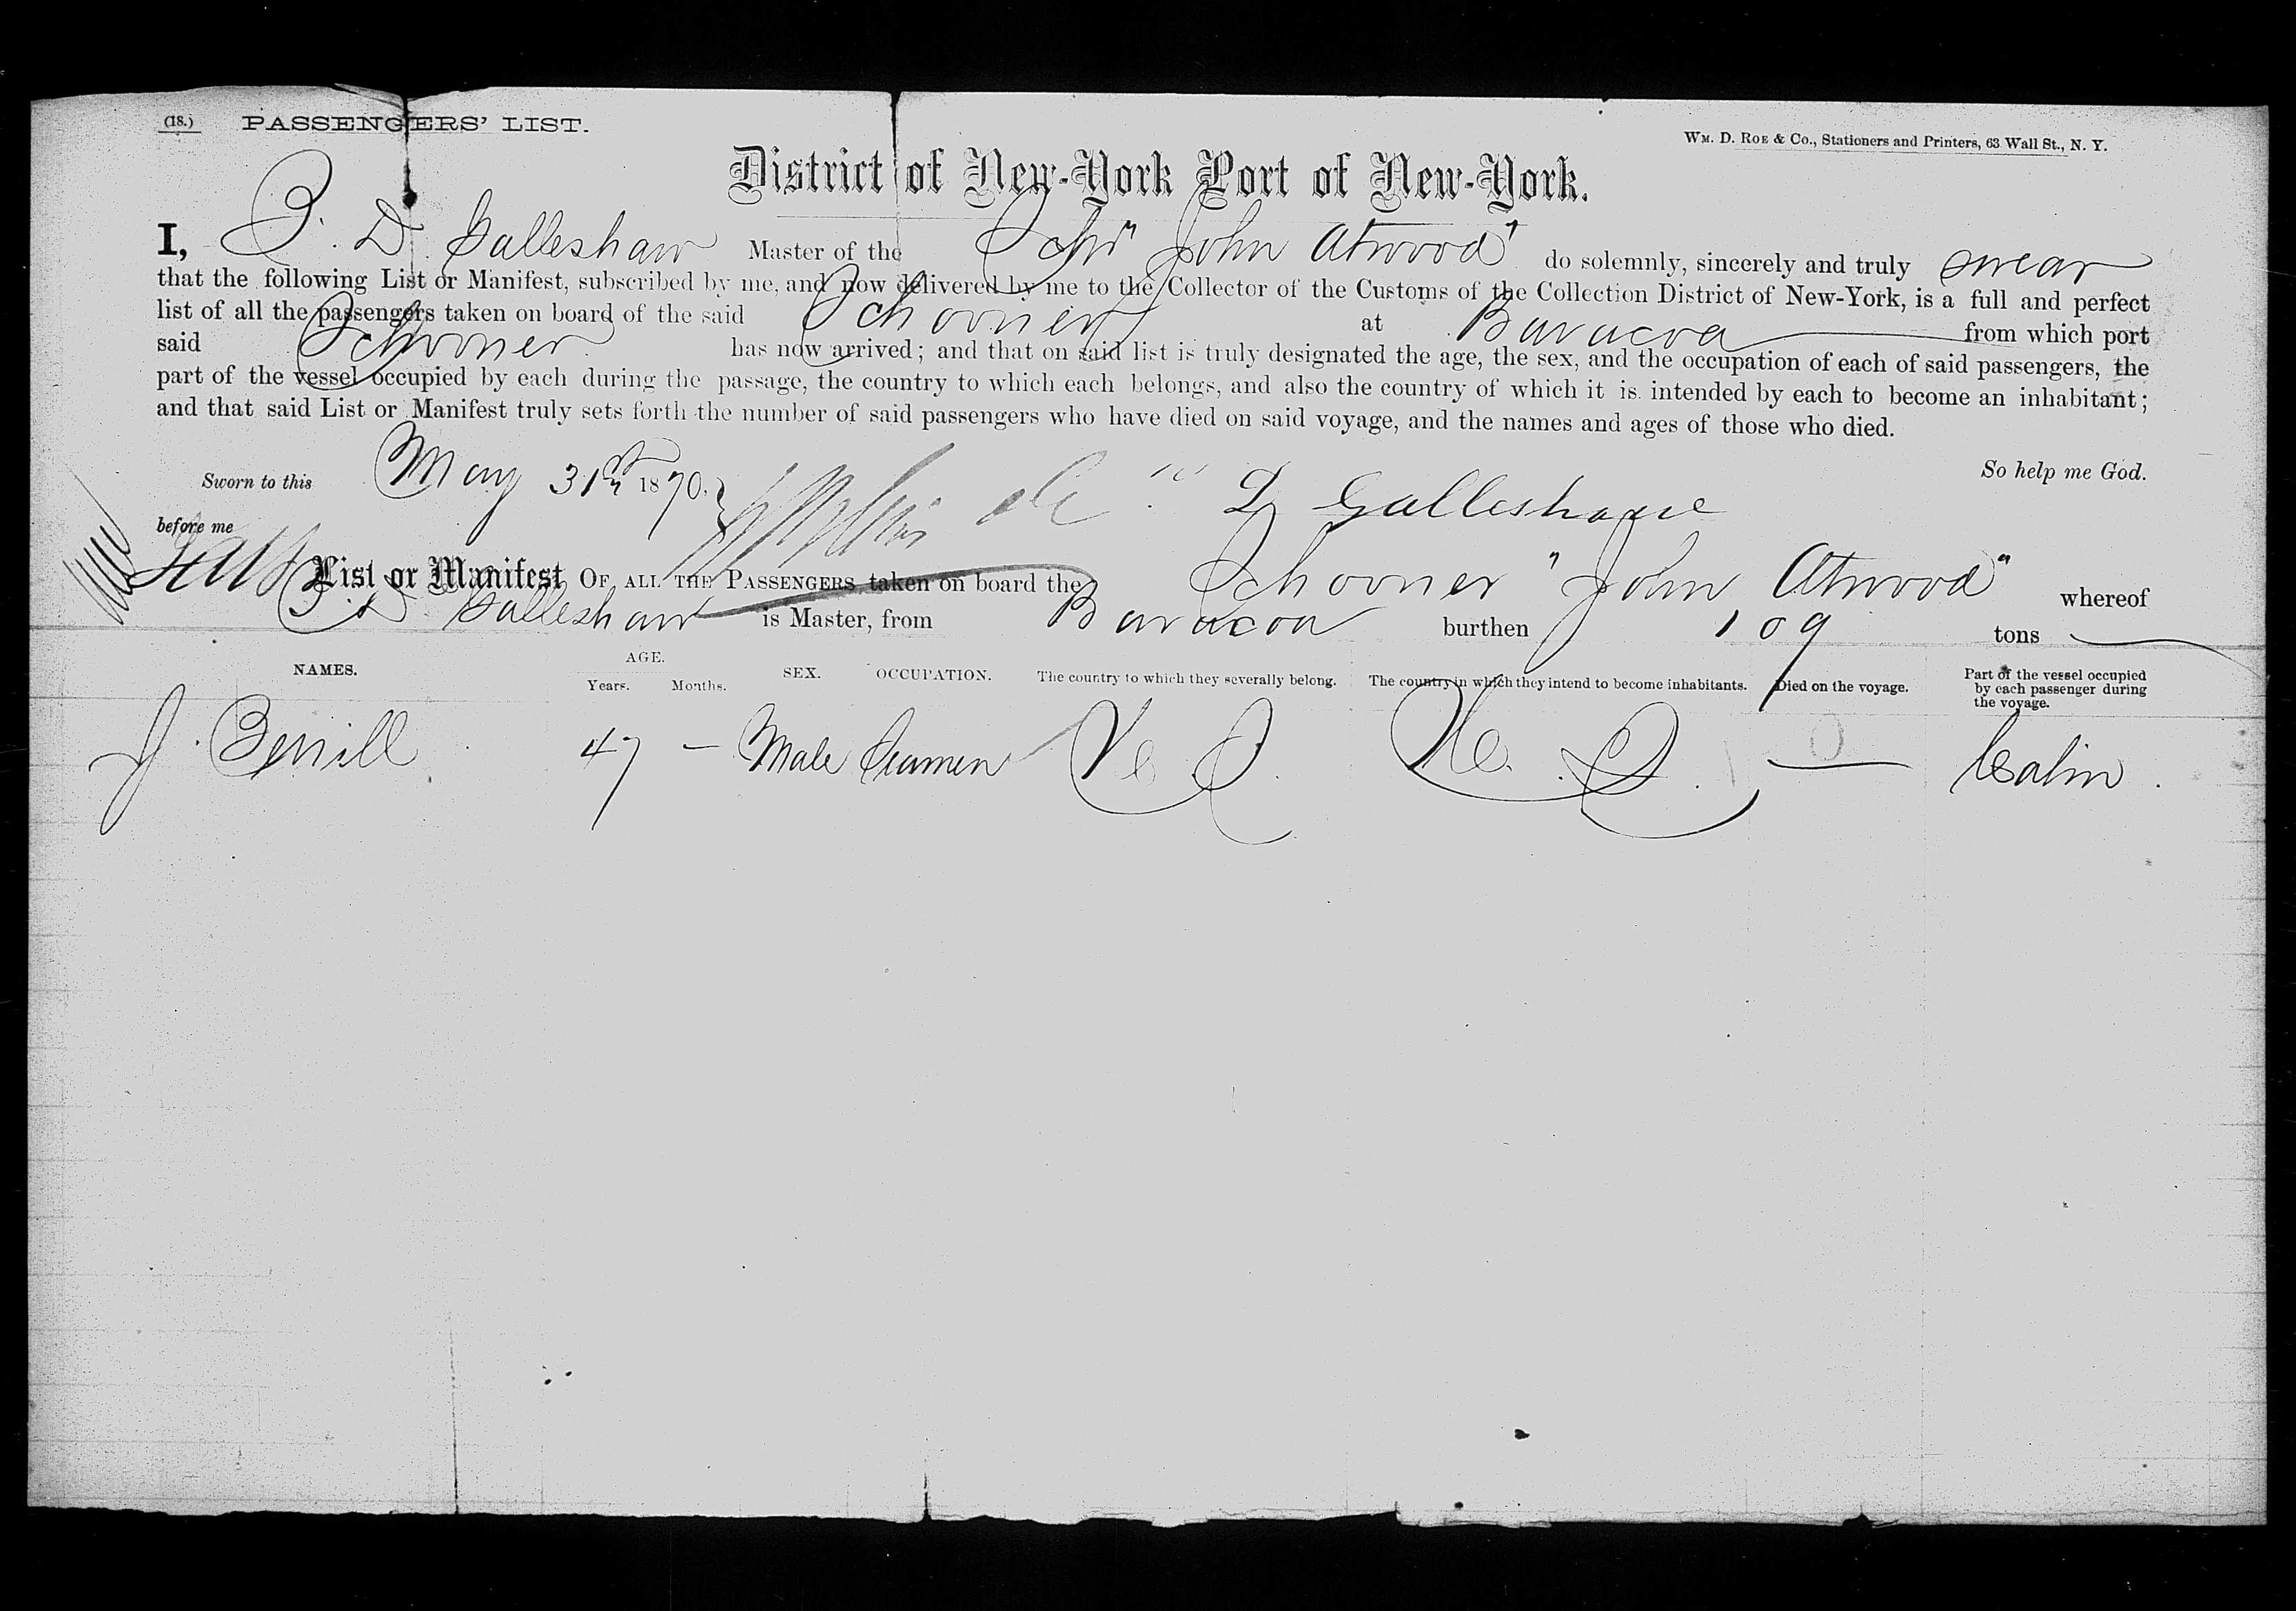 (18.) PASSENGERS' LIST.
WM. D. ROE & Co., Stationers and Printers, 63 Wall St., N. Y.
District of New-York Port of New-York.
I, D. Galleshaw Master of the Schr "John Atwood" do solemnly, sincerely and truly swear
that the following List or Manifest, subscribed by me, and now delivered by me to the Collector of the Customs of the Collection District of New-York, is a full and perfect
list of all the passengers taken on board of the said Schooner at Baracoa from which port
said Schooner has now arrived; and that on said list is truly designated the age, the sex, and the occupation of each of said passengers, the
part of the vessel occupied by each during the passage, the country to which each belongs, and also the country of which it is intended by each to become an inhabitant;
and that said List or Manifest truly sets forth the number of said passengers who have died on said voyage, and the names and ages of those who died.
So help me God.
Sworn to this May 31st 1870. D Galleshaw
before me
List or Manifest OF ALL THE PASSENGERS taken on board the Schooner "John Atwood" whereof
D. Galleshaw is Master, from Baracoa burthen 109 tons
NAMES. AGE. Years. Months. SEX. OCCUPATION. The country to which they severally belong. The country in which they intend to become inhabitants. Died on the voyage. Part of the vessel occupied by each passenger during the voyage.
J. Berrill 47 — Male Seamen U S. U. S. 0 Cabin.